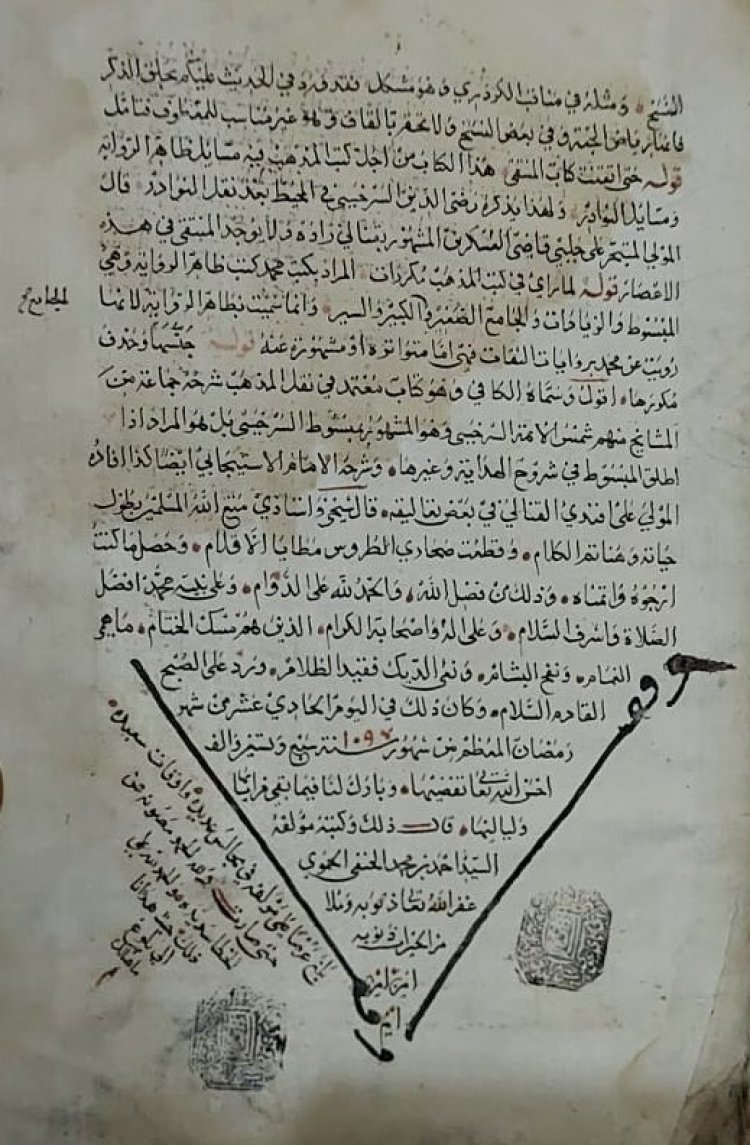 النسخ ومثله في مناقب الكردري وهو مشكل فقد ورد في الحديث عليكم بحلق الذكر
فانها رياض الجنة وفي بعض النسخ ولا تحقر بالقاف وهو غير مناسب للمقاوف فتأمل
قوله حتى اتقنت كتاب المنتقى هذا الكتاب من اجل كتب المذهب فيه مسايل ظاهر الرواية
ومسايل النوادر ولهذا يذكره رضي الدين السرخسي في المحيط بعد نقل النوادر قال
المولى علي جلبي قاضي العسكر المشهور بمتالي زاده ولا يوجد المنتقى في هذه
الاعصار قوله لما راي في كتب المذهب مكررات المراد بكتب محمد كتب ظاهر الرواية وهي
المبسوط والزيادات والجامع الصغير والكبير والسير وانما سميت بظاهر الرواية لانها
الجامع
رويت عن محمد بروايات الثقات فهي اما متواترة او مشهورة عنه قوله وحذف
مكررها اقول وسماه الكافي وهو كتاب معتمد في نقل المذهب شرحه جماعة من
المشايخ منهم شمس الايمة السرخسي وهو المشهور بمبسوط السرخسي بل هو المراد اذا
اطلق المبسوط في شروح الهداية وغيرها وشرحه الامام الاسبيجابي ايضا كذا افاده
المولى علي افندي في بعض تعاليقه قال شيخي واستاذي متع الله المسلمين بطول
حياته وهنا تم الكلام وقطعت صحاري الطروس مطايا الاقلام وحصل ما كنت
ارجوه واتمناه وذلك من فضل الله والحمد لله على الدوام وعلى نبيه محمد افضل
الصلاة واشرف السلام وعلى اله واصحابه الكرام الذين هم مسك الختام ما هي
الغمام ونفح البشام ونعى الديك فقيد الظلام ورد على الصبح
القادم السلام وكان ذلك في اليوم الحادي عشر من شهر
رمضان المعظم من شهور سنة ١٠٩٧ سبع وتسعين والف
احسن الله تعا تقضيها وبارك لنا فيما بقي من ايامها
ولياليها قال ذلك وكتبه مؤلفه
السيد احمد بن محمد الحنفي الحموي
غفر الله تعا ذنوبه وملا
من الخيرات ذنوبه
امين امين
امين
بلغ على مؤلفه في مجالس عديده واوقات سعيده
حتى صارت من